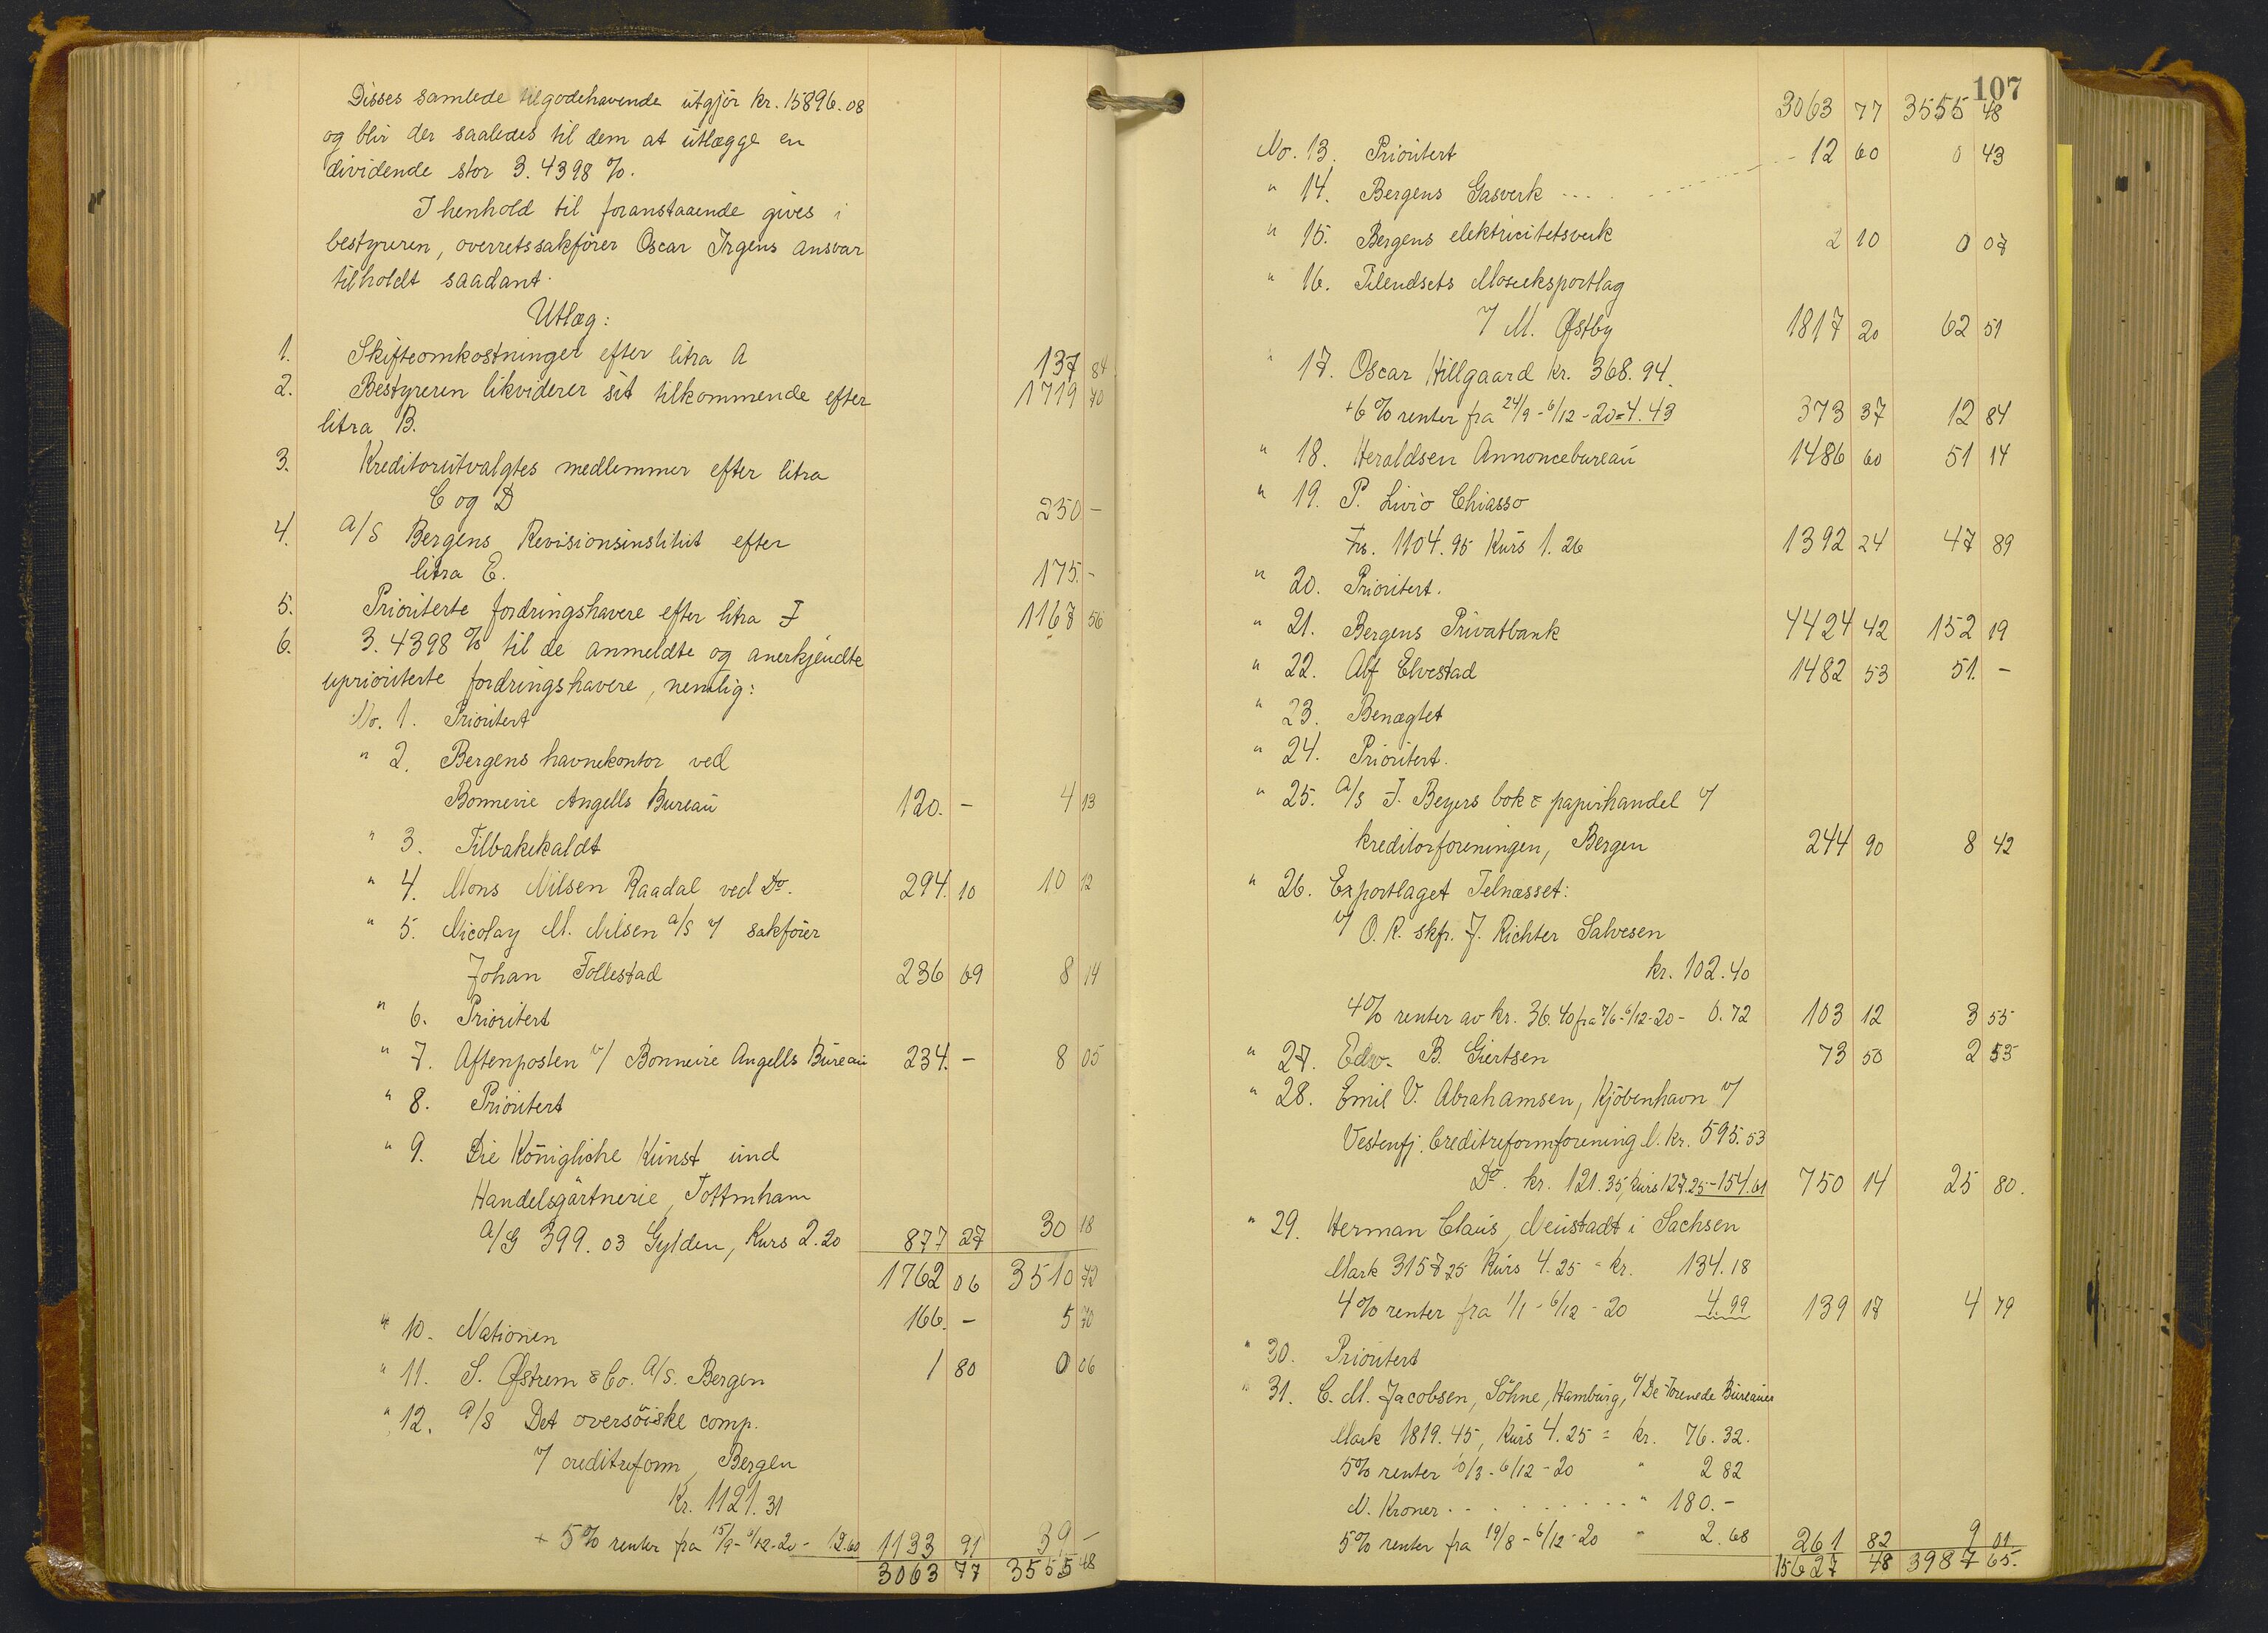 Disses samlede tilgodehavende utgjör kr. 15896.08
og blir der saaledes til dem at utlægge en
dividende stor 3.4398 %.
I henhold til foranstaaende gives i
bestyreren, overretssakförer Oscar Irgens ansvar
tilholdt saadant
Utlæg:
1. Skifteomkostninger efter litra A 137 84
2. Bestyreren likviderer sit tilkommende efter 1719 70
litra B.
3. Kreditorutvalgtes medlemmer efter litra
C og D 250 -
4. A/S Bergens Revisionsinstitut efter
litra E. 175.-
5. Prioriterte fordringshavere efter litra F 1167 56
6. 3.4398 % til de anmeldte og anerkjendte
uprioriterte fordringshavere, nemlig:
No. 1. Prioritert
" 2. Bergens havnekontor ved
Bonnevie Angells Bureau 120. - 4 13
" 3. Tilbakekaldt
" 4. Mons Nilsen Raadal ved Do. 294. 10 10 12
" 5. Nicolay M. Nilsen A/S v/ sakförer
Johan Follestad 236 69 8 14
" 6. Prioritert
" 7. Aftenposten v/ Bonnevie Angells Bureau 234. - 8 05
" 8. Prioritert
" 9. Die Königliche Kunst und
Handelsgärtnerie, Tottenham
A/G 399.03 Gylden, Kurs 2.20 877 27 30 18
1762 06 3510 72
" 10. Nationen 166. - 5 70
" 11. S. Østrem & Co. A/S. Bergen 1 80 0 06
" 12. A/S Det oversöiske comp.
v/ creditreform, Bergen
Kr. 1121.31
+ 5% renter fra 15/9 - 6/12-20 - 12.60 1133 91 39 -
3063 77 3555 48
107
3063 77 3555 48
No. 13. Prioritert 12 60 0 43
" 14. Bergens Gasverk
" 15. Bergens elektricitetsverk 2 10 0 07
" 16. Tilendsets Moseeksportlag
v/ M. Østby 1817 20 62 51
" 17. Oscar Hillgaard kr. 368.94.
+6% renter fra 24/9 - 6/12 - 20 = 4.43 373 37 12 84
" 18. Heraldsen Annoncebureau 1486 60 51 14
" 19. P. Livio Chiasso
Frs. 1104.95 Kurs 1.26 1392 24 47 89
" 20. Prioritert.
" 21. Bergens Privatbank 4424 42 152 19
" 22. Alf Elvestad 1482 53 51. -
" 23. Benægtet
" 24. Prioritert.
" 25. A/S F. Beyers bok & papirhandel v/
kreditorforeningen, Bergen 244 90 8 42
" 26. Exportlaget Telnæsset:
v/ O.R. skfr. J. Richter Salvesen
kr. 102.40
4% renter av kr. 36.40 fra 7/6 - 6/12-20 - 0.72 103 12 3 55
" 27. Edv. B. Giertsen 73 50 2 53
" 28. Emil V. Abrahamsen, Kjöbenhavn v/
Vestenfj. Creditreformforening N. kr. 595.53
Do. kr. 121.35, kurs 127.25 - 154.61 750 14 25 80.
" 29. Herman Claus, Neustadt i Sachsen
Mark 3157.25 Kurs 4.25 = kr. 134.18
4% renter fra 1/1 - 6/12 - 20 4.99 139 17 4 79
" 30. Prioritert
" 31. C. M. Jacobsen, Söhne, Hamburg, v/ De Forenede Bureauer
Mark 1819.45, Kurs 4.25 = kr. 76.32.
5% renter 10/3 - 6/12 - 20 " 2 82
N. Kroner . . . . . . . . . " 180.-
5% renter fra 19/8 - 6/12 - 20 " 2.68 261 82 9 01
15627 48 3987 65.